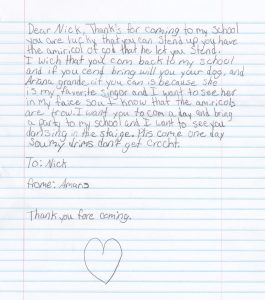 Dear Nick, Thank's for coming to my school
you are lucky that you can stand up you have
the amiricol of god that he let you stend.
I wich that you'l com back to my school
and if you cend bring will you your dog, and
Ariana grande, if you can is because she
is my favorite singor and I want to see her
in my faice sow I know that the amiricols
are trow. I want you to com a day and bring
a party to my school and I want to see you
dansing in the staige. Mrs come one day
sow my drims don't get crocht.
To: Nick
From: Amans
Thank you fore coming.